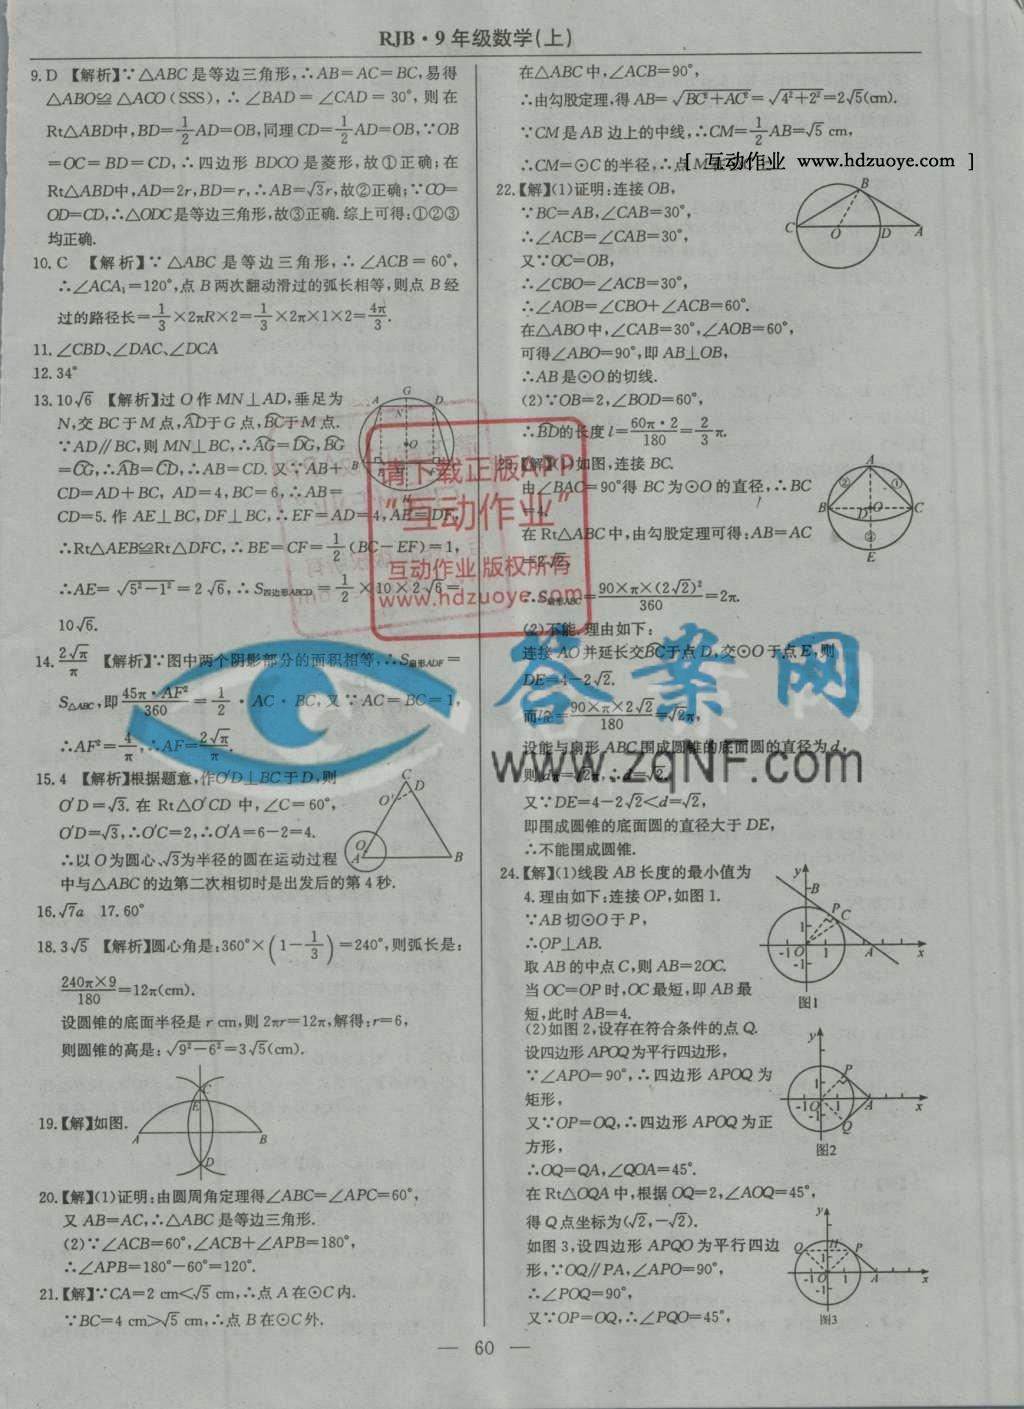 RJB·9年级数学(上)
9.D 【解析】∵△ABC是等边三角形,∴AB=AC=BC,易得
△ABO≌△ACO(SSS),∴∠BAD=∠CAD=30°,则在
Rt△ABD中,BD=1/2AD=OB,同理CD=1/2AD=OB,∵OB
=OC=BD=CD,∴四边形BDCO是菱形,故①正确;在
Rt△ABD中,AD=2r,BD=r,∴AB=√3r,故②正确;∵CO=
OD=CD,∴△ODC是等边三角形,故③正确.综上可得:①②③
均正确.
10.C 【解析】∵△ABC是等边三角形,∴∠ACB=60°,
∴∠ACA₁=120°,点B两次翻动滑过的弧长相等,则点B经
过的路径长=1/3×2πR×2=1/3×2π×1×2=4π/3.
11.∠CBD、∠DAC、∠DCA
12.34°
13.10√6 【解析】过O作MN⊥AD,垂足为
N,交BC于M点,A͡D于G点,B͡C于M点.
∵AD∥BC,则MN⊥BC,∴A͡G=D͡G,B͡G
=C͡G,∴A͡B=C͡D,∴AB=CD.又∵AB+
CD=AD+BC,AD=4,BC=6,∴AB=
CD=5.作AE⊥BC,DF⊥BC,∴EF=AD=4,AE=DF,
∴Rt△AEB≌Rt△DFC,∴BE=CF=1/2(BC−EF)=1,
∴AE=√(5²−1²)=2√6,∴S四边形ABCD=1/2×10×2√6=
10√6.
14.2√π/π 【解析】∵图中两个阴影部分的面积相等,∴S扇形ADF=
S△ABC,即45π·AF²/360=1/2·AC·BC,又∵AC=BC=1,
∴AF²=4/π,∴AF=2√π/π.
15.4 【解析】根据题意,作O′D⊥BC于D,则
O′D=√3.在Rt△O′CD中,∠C=60°,
O′D=√3,∴O′C=2,∴O′A=6−2=4.
∴以O为圆心、√3为半径的圆在运动过程
中与△ABC的边第二次相切时是出发后的第4秒.
16.√7a 17.60°
18.3√5 【解析】圆心角是:360°×(1−1/3)=240°,则弧长是:
240π×9/180=12π(cm).
设圆锥的底面半径是r cm,则2πr=12π,解得:r=6,
则圆锥的高是:√(9²−6²)=3√5(cm).
19.【解】如图.
20.【解】(1)证明:由圆周角定理得∠ABC=∠APC=60°,
又AB=AC,∴△ABC是等边三角形.
(2)∵∠ACB=60°,∠ACB+∠APB=180°,
∴∠APB=180°−60°=120°.
21.【解】∵CA=2 cm<√5 cm,∴点A在⊙C内.
∵BC=4 cm>√5 cm,∴点B在⊙C外.
在△ABC中,∠ACB=90°,
∴由勾股定理,得AB=√(BC²+AC²)=√(4²+2²)=2√5(cm).
∵CM是AB边上的中线,∴CM=1/2AB=√5 cm,
∴CM=⊙C的半径,∴点
[ 互动作业 www.hdzuoye.com ]
22.【解】(1)证明:连接OB,
∵BC=AB,∠CAB=30°,
∴∠ACB=∠CAB=30°,
又∵OC=OB,
∴∠CBO=∠ACB=30°,
∴∠AOB=∠CBO+∠ACB=60°.
在△ABO中,∠CAB=30°,∠AOB=60°,
可得∠ABO=90°,即AB⊥OB,
∴AB是⊙O的切线.
(2)∵OB=2,∠BOD=60°,
∴B͡D的长度l=60π·2/180=2/3π.
23.【解】(1)如图,连接BC.
由∠BAC=90°得BC为⊙O的直径,∴BC
=4.
在Rt△ABC中,由勾股定理可得:AB=AC
=2√2,
∴S扇形ABC=90×π×(2√2)²/360=2π.
(2)不能.理由如下:
连接AO并延长交B͡C于点D,交⊙O于点E,则
DE=4−2√2.
而l=90×π×2√2/180=√2π,
设能与扇形ABC围成圆锥的底面圆的直径为d,
则dπ=√2π,∴d=√2.
又∵DE=4−2√2<d=√2,
即围成圆锥的底面圆的直径大于DE,
∴不能围成圆锥.
24.【解】(1)线段AB长度的最小值为
4.理由如下:连接OP,如图1.
∵AB切⊙O于P,
∴OP⊥AB.
取AB的中点C,则AB=2OC.
当OC=OP时,OC最短,即AB最
短,此时AB=4.
图1
(2)如图2,设存在符合条件的点Q.
设四边形APOQ为平行四边形,
∵∠APO=90°,∴四边形APOQ为
矩形,
又∵OP=OQ,∴四边形APOQ为正
方形,
图2
∴OQ=QA,∠QOA=45°.
在Rt△OQA中,根据OQ=2,∠AOQ=45°,
得Q点坐标为(√2,−√2).
如图3,设四边形APQO为平行四边
形,∵OQ∥PA,∠APO=90°,
∴∠POQ=90°,
又∵OP=OQ,∴∠PQO=45°,
图3
请下载正版APP
“互动作业”
互动作业 版权所有
www.hdzuoye.com
答案网
www.zqNF.com
— 60 —